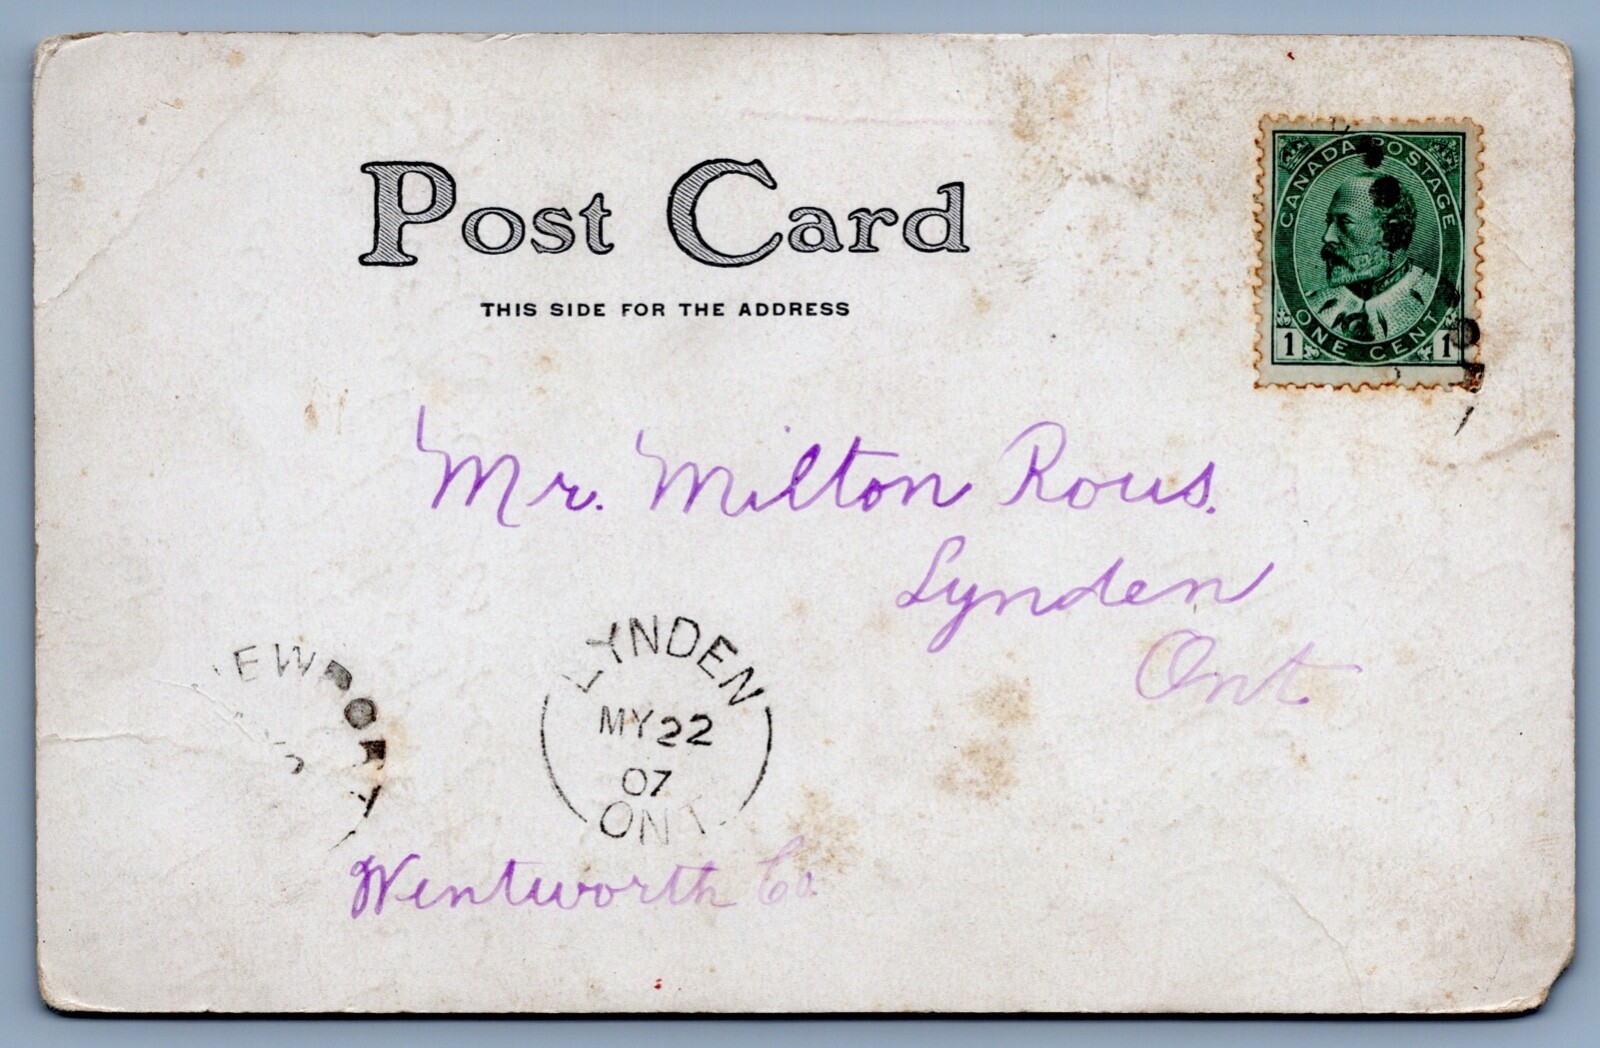 Post Card
THIS SIDE FOR THE ADDRESS
CANADA POSTAGE
ONE CENT
1 1
Mr. Milton Rous.
Lynden
Ont.
EWPORT
LYNDEN
MY 22
07
ONT
Wentworth Co.